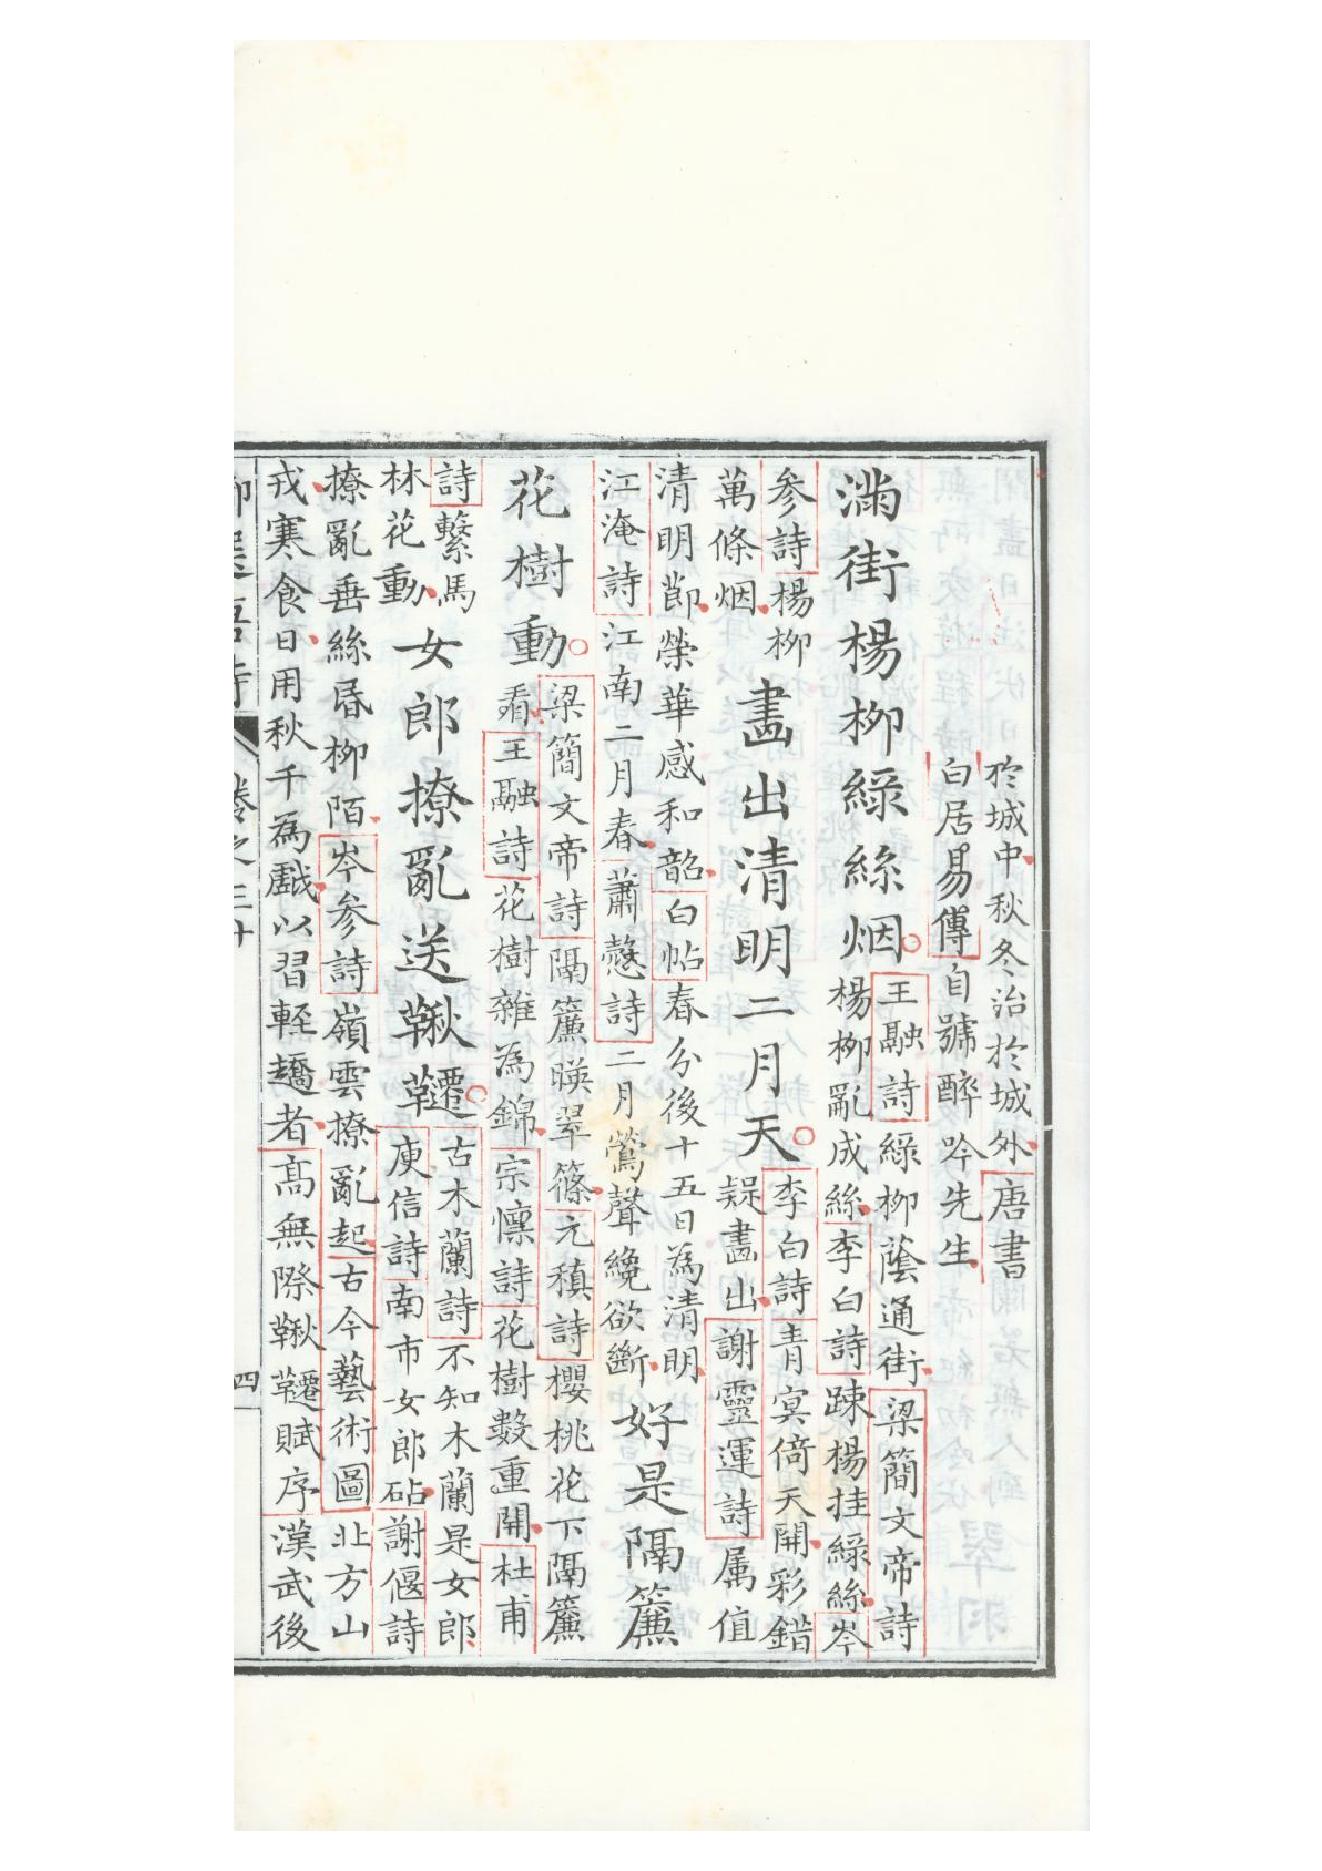 於城中秋冬治於城外唐書
白居易傳自號醉吟先生
滿街楊柳綠絲烟
王融詩綠柳蔭通街梁簡文帝詩
楊柳亂成絲李白詩疎楊挂綠絲岑
參詩楊柳
萬條烟
畫出清明二月天
李白詩青冥倚天開彩錯
疑畫出謝靈運詩属值
清明節榮華感和韶白帖春分後十五日為清明
江淹詩江南二月春蕭慤詩二月鶯聲纔欲斷
好是隔簾
花樹動
梁簡文帝詩隔簾暎翠篠元稹詩櫻桃花下隔簾
看王融詩花樹雜為錦宗懍詩花樹數重開杜甫
詩繫馬
林花動
女郎撩亂送鞦韆
古木蘭詩不知木蘭是女郎
庾信詩南市女郎砧謝偃詩
撩亂垂絲昏柳陌岑參詩嶺雲撩亂起古今藝術圖北方山
戎寒食日用秋千為戲以習輕趫者高無際鞦韆賦序漢武後
卷之三十
四